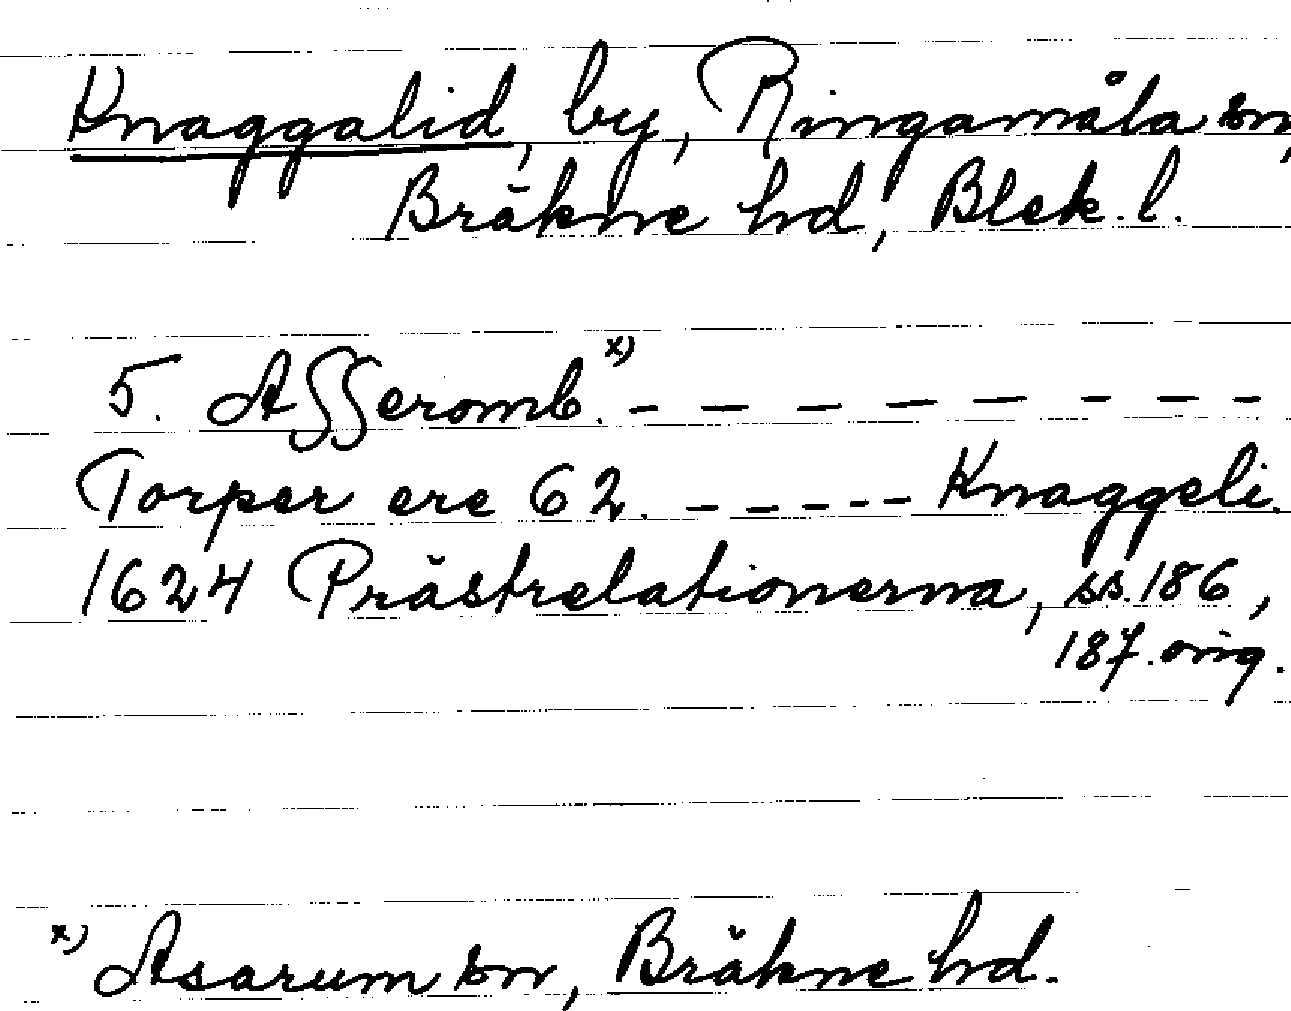 Knaggalid, by, Ringamåla sn,
Bräkne hd, Blek. l.
5. Asseromb. x) - - - - - - - -
Torper ere 62. - - - - - Knaggeli.
1624 Prästrelationerna, ss. 186,
187. orig.
x) Asarum sn, Bräkne hd.